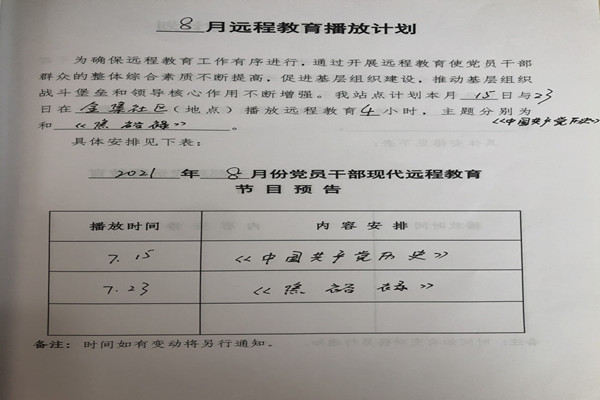 8月远程教育播放计划
为确保远程教育工作有序进行，通过开展远程教育使党员干部
群众的整体综合素质不断提高，促进基层组织建设，推动基层组织
战斗堡垒和领导核心作用不断增强。我站点计划本月15日与23
日在金集社区(地点)播放远程教育4小时，主题分别为
《中国共产党历史》
和《焦裕禄》。
具体安排见下表：
2021年8月份党员干部现代远程教育
节目预告
播放时间 内容安排
7.15 《中国共产党历史》
7.23 《焦裕禄》
备注：时间如有变动将另行通知。